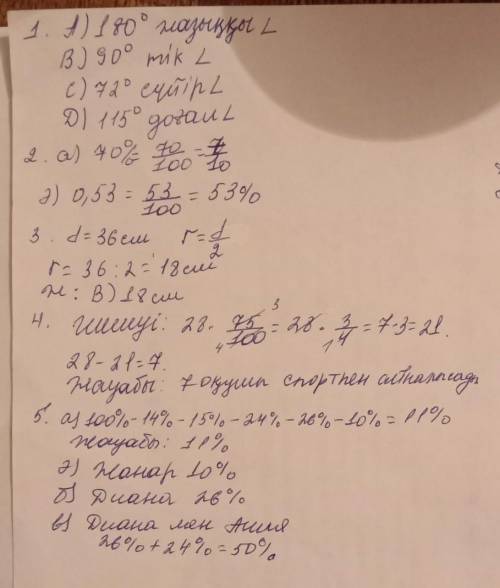 1. A) 180° жазыңқы ∠
B) 90° тік ∠
C) 72° сүйір ∠
D) 115° доғал ∠
2. a) 70% = 70/100 = 7/10
ә) 0,53 = 53/100 = 53%
3. d = 36 см r = d/2
r = 36 : 2 = 18 см
Ж: B) 18 см
4. Шешуі: 28 · 75/100 = 28 · 3/4 = 7·3 = 21.
28 - 21 = 7.
Жауабы: 7 оқушы спортпен
5. а) 100% - 14% - 15% - 24% - 26% - 10% = 11%
Жауабы: 11%
ә) Жанар 10%
б) Диана 26%
в) Диана мен Асия
26% + 24% = 50%